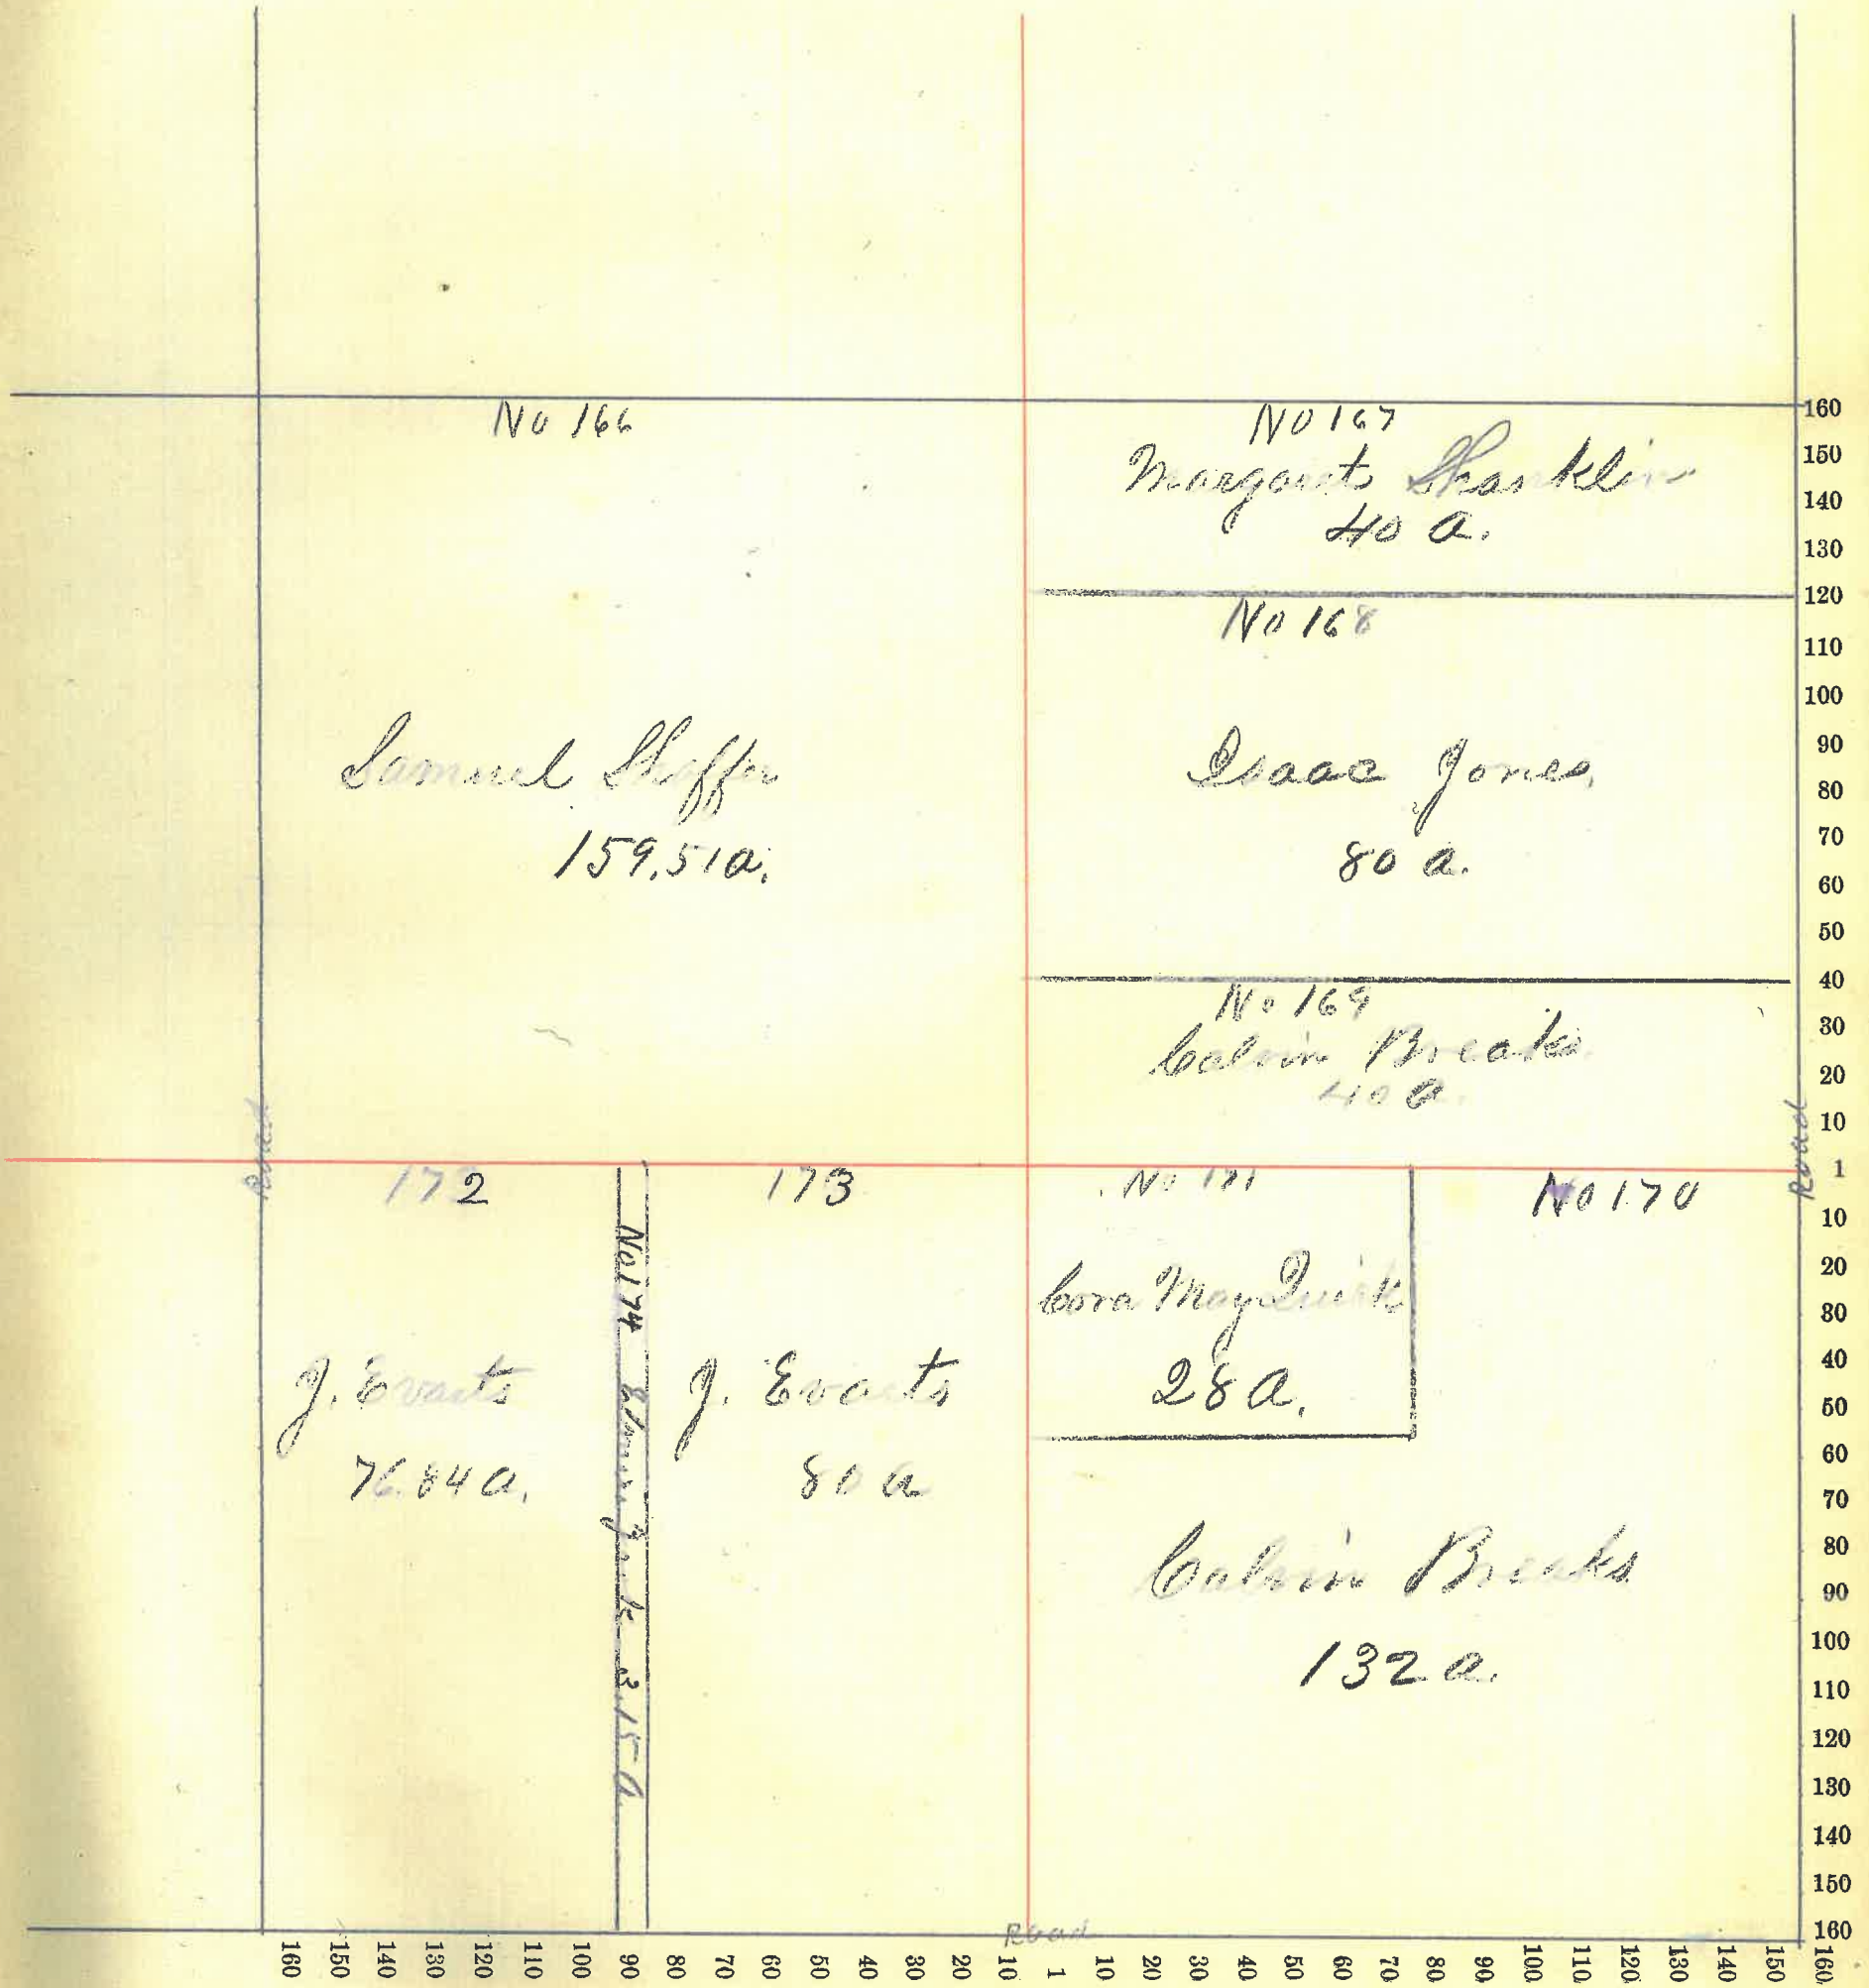 No 166
Samuel Shaffer
159.51 a.
No 167
Margaret Shanklin
40 a.
No 168
Isaac Jones
80 a.
No 169
Calvin Breaks
40 a
Road
Road
172
J. Evarts
76.84 a.
No 174 Quick 3.15 a
173
J. Evarts
80 a
No 171
Cora May Quick
28 a.
No 170
Calvin Breaks
132 a.
Road
160
150
140
130
120
110
100
90
80
70
60
50
40
30
20
10
1
10
20
30
40
50
60
70
80
90
100
110
120
130
140
150
160
160 150 140 130 120 110 100 90 80 70 60 50 40 30 20 10 1 10 20 30 40 50 60 70 80 90 100 110 120 130 140 150 160